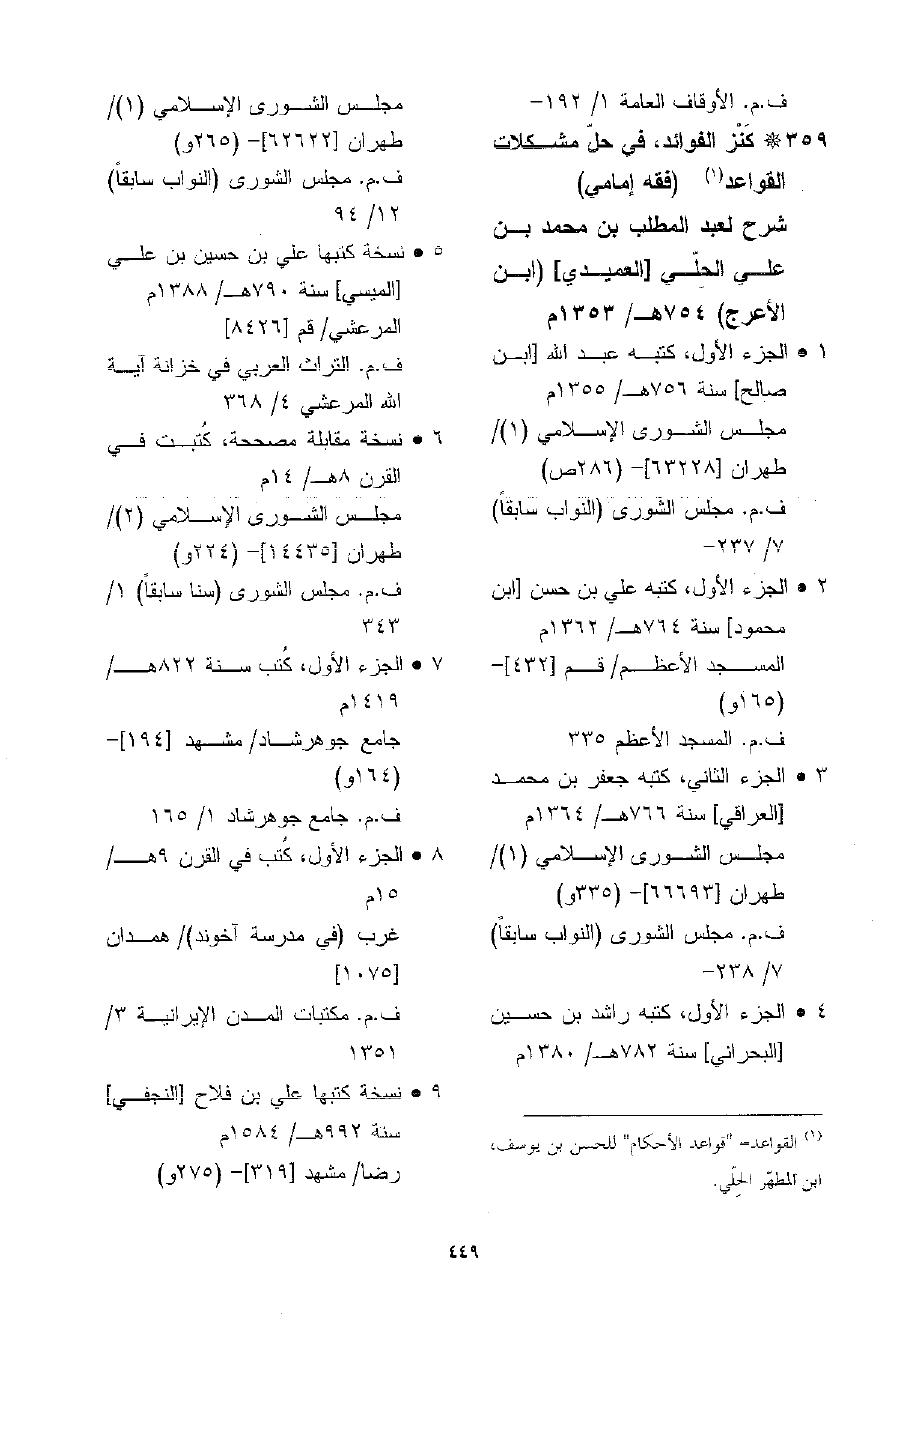 ف.م. الأوقاف العامة ١/ ١٩٢-
٣٥٩* كَنْز الفوائد، في حلّ مشكلات
القواعد(١) (فقه إمامي)
شرح لعبد المطلب بن محمد بن
علي الحلّي [العميدي] (ابن
الأعرج) ٧٥٤هـ/ ١٣٥٣م
١ • الجزء الأول، كتبه عبد الله [ابن
صالح] سنة ٧٥٦هـ/ ١٣٥٥م
مجلس الشورى الإسلامي (١)/
طهران [٦٣٢٢٨]- (٢٨٦ص)
ف.م. مجلس الشورى (النواب سابقاً)
٧/ ٢٣٧-
٢ • الجزء الأول، كتبه علي بن حسن [ابن
محمود] سنة ٧٦٤هـ/ ١٣٦٢م
المسجد الأعظم/ قم [٤٣٢]-
(١٦٥و)
ف.م. المسجد الأعظم ٣٣٥
٣ • الجزء الثاني، كتبه جعفر بن محمد
[العراقي] سنة ٧٦٦هـ/ ١٣٦٤م
مجلس الشورى الإسلامي (١)/
طهران [٦٦٦٩٣]- (٣٣٥و)
ف.م. مجلس الشورى (النواب سابقاً)
٧/ ٢٣٨-
٤ • الجزء الأول، كتبه راشد بن حسين
[البحراني] سنة ٧٨٢هـ/ ١٣٨٠م
(١) القواعد= "قواعد الأحكام" للحسن بن يوسف،
ابن المطهّر الحِلّي.
مجلس الشورى الإسلامي (١)/
طهران [٦٢٦٢٢]- (٢٦٥و)
ف.م. مجلس الشورى (النواب سابقاً)
١٢/ ٩٤
٥ • نسخة كتبها علي بن حسين بن علي
[الميسي] سنة ٧٩٠هـ/ ١٣٨٨م
المرعشي/ قم [٨٤٢٦]
ف.م. التراث العربي في خزانة آية
الله المرعشي ٤/ ٣٦٨
٦ • نسخة مقابلة مصححة، كُتبت في
القرن ٨هـ/ ١٤م
مجلس الشورى الإسلامي (٢)/
طهران [١٤٤٣٥]- (٢٢٤و)
ف.م. مجلس الشورى (سنا سابقاً) ١/
٣٤٣
٧ • الجزء الأول، كُتب سنة ٨٢٢هـ/
١٤١٩م
جامع جوهرشاد/ مشهد [١٩٤]-
(١٦٤و)
ف.م. جامع جوهرشاد ١/ ١٦٥
٨ • الجزء الأول، كُتب في القرن ٩هـ/
١٥م
غرب (في مدرسة آخوند)/ همدان
[١٠٧٥]
ف.م. مكتبات المدن الإيرانية ٣/
١٣٥١
٩ • نسخة كتبها علي بن فلاح [النجفي]
سنة ٩٩٢هـ/ ١٥٨٤م
رضا/ مشهد [٣١٩]- (٢٧٥و)
٤٤٩